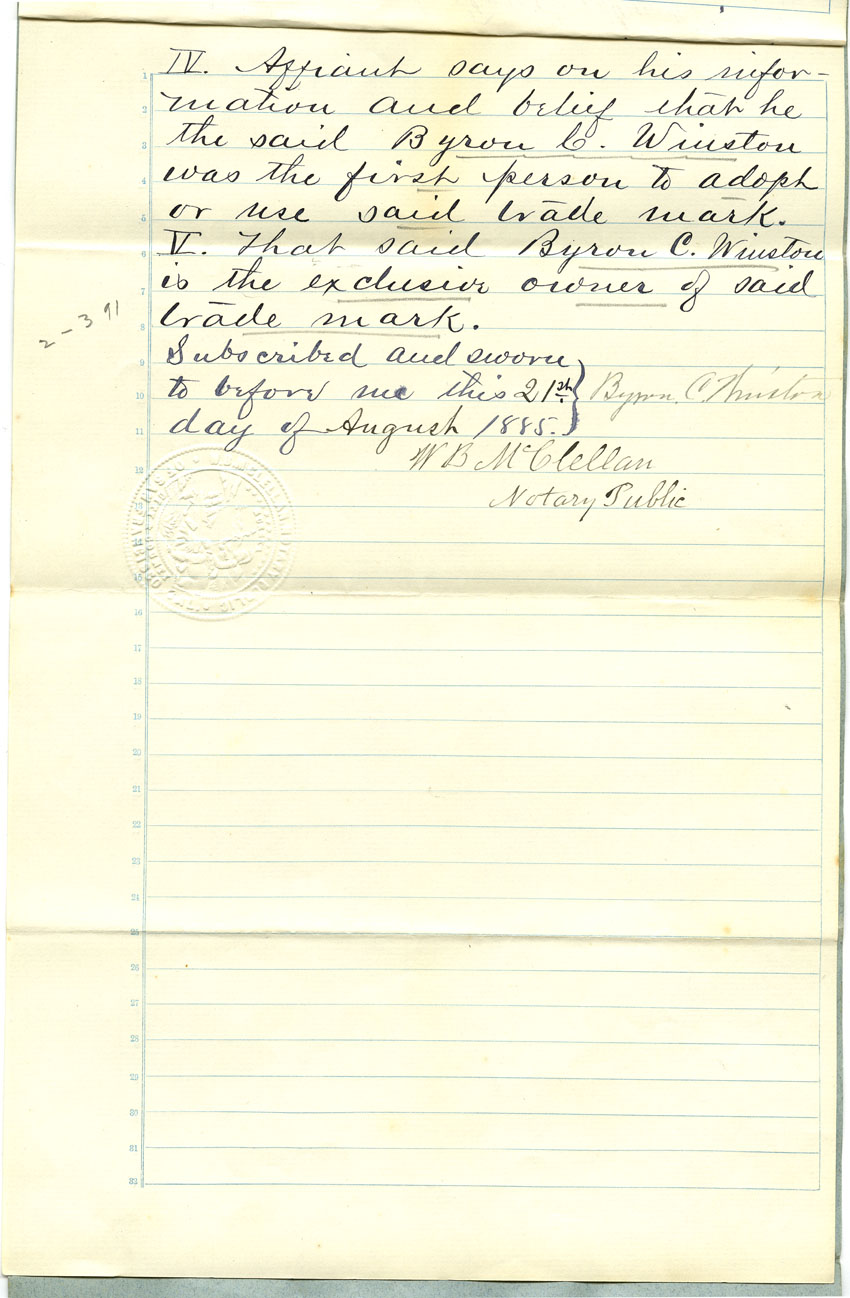 IV. Affiant says on his infor-
mation and belief that he
the said Byron C. Winston
was the first person to adopt
or use said trade mark.
V. That said Byron C. Winston
is the exclusive owner of said
trade mark.
2-391
Subscribed and sworn
to before me this 21st
day of August 1885.
Byron C. Winston
W B McClellan
Notary Public
1
2
3
4
5
6
7
8
9
10
11
12
14
15
16
17
18
19
20
21
22
23
24
25
26
27
28
29
30
31
32